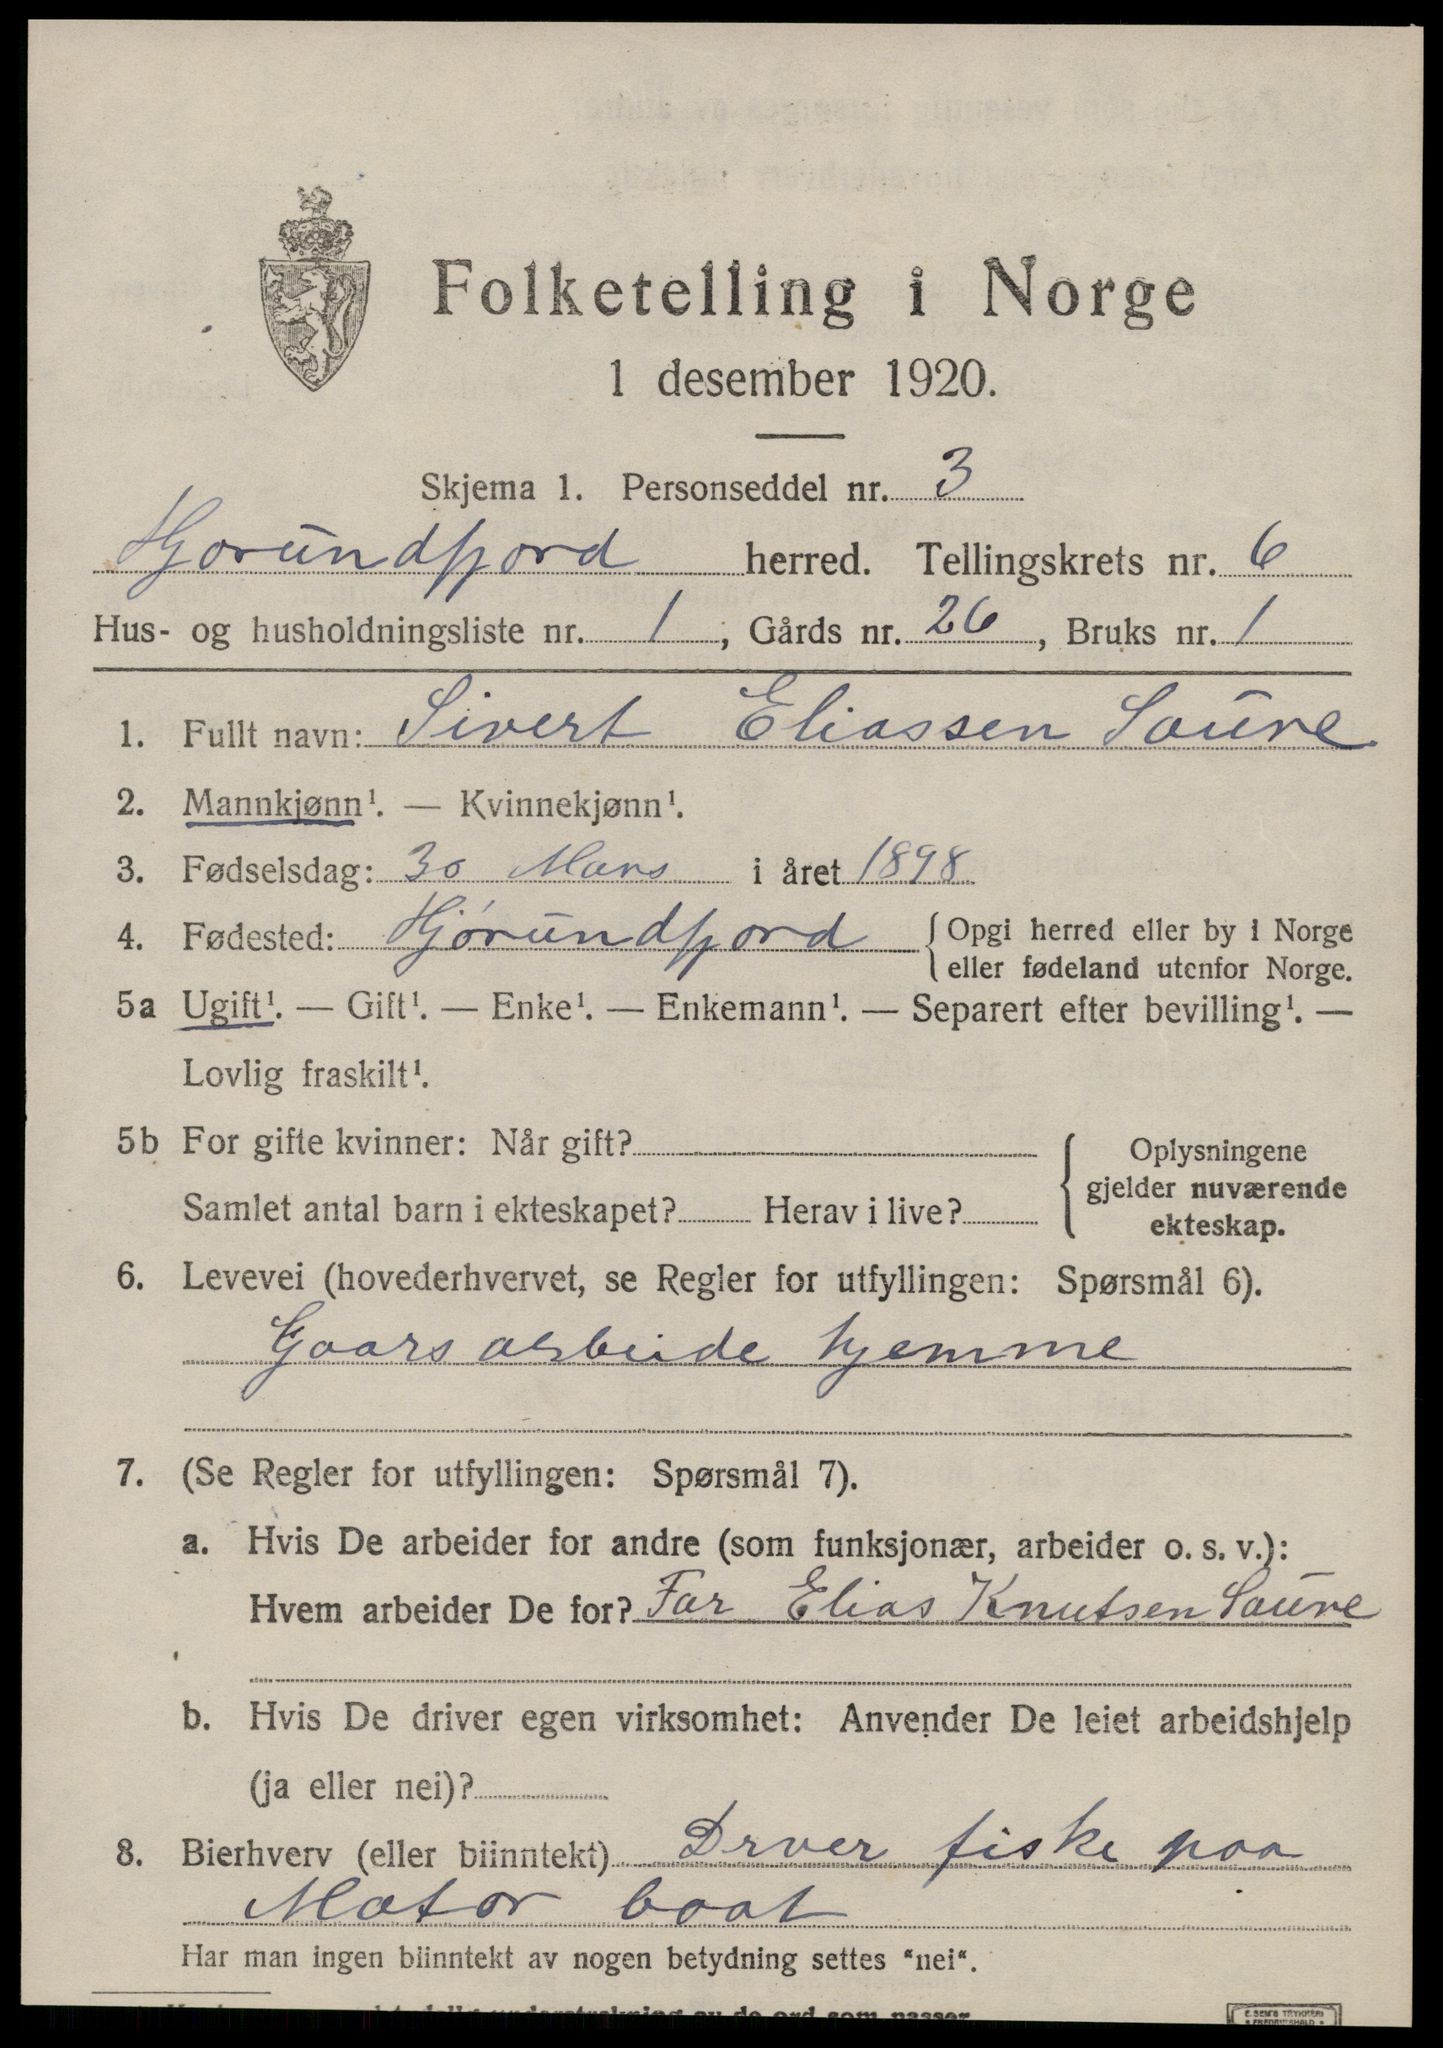 Folketelling i Norge
1 desember 1920.
Skjema 1. Personseddel nr. 3
Hjorundfjord herred. Tellingskrets nr. 6
Hus- og husholdningsliste nr. 1, Gårds nr. 26, Bruks nr. 1
1. Fullt navn: Sivert Eliassen Saure
2. Mannkjønn¹. — Kvinnekjønn¹.
3. Fødselsdag: 30 Mars i året 1898
4. Fødested: Hjørundfjord { Opgi herred eller by i Norge
eller fødeland utenfor Norge.
5a Ugift¹. — Gift¹. — Enke¹. — Enkemann¹. — Separert efter bevilling¹. —
Lovlig fraskilt¹.
5b For gifte kvinner: Når gift?
Samlet antal barn i ekteskapet? Herav i live?
Oplysningene
gjelder nuværende
ekteskap.
6. Levevei (hovederhvervet, se Regler for utfyllingen: Spørsmål 6).
Gaars arbeide hjemme
7. (Se Regler for utfyllingen: Spørsmål 7).
a. Hvis De arbeider for andre (som funksjonær, arbeider o. s. v.):
Hvem arbeider De for? Far Elias Knutsen Saure
b. Hvis De driver egen virksomhet: Anvender De leiet arbeidshjelp
(ja eller nei)?
8. Bierhverv (eller biinntekt) Drver fiske paa
Motor baat
Har man ingen biinntekt av nogen betydning settes "nei".
understrekning av de ord som passer
E. SEM'S TRYKKERI
FREDRIKSHALD